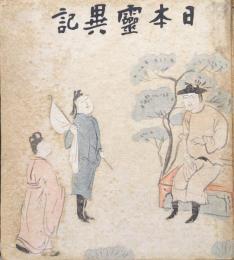 日本靈異記